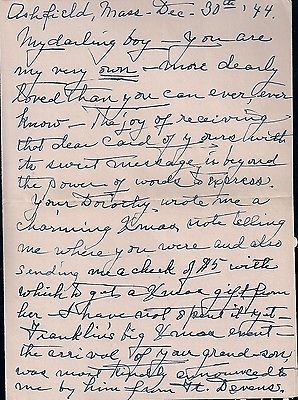 Ashfield, Mass- Dec- 30th, '44.
My darling boy - you are
my very own - more dearly
loved than you can ever, ever
know - The joy of receiving
that dear card of yours with
its sweet message, is beyond
the power of words to express.
Your Dorothy wrote me a
charming Xmas note telling
me where you were and also
sending me a check of $5 with
which to get a Xmas gift from
her - I have not spent it yet -
Franklin's big Xmas event -
the arrival of your grandson,
was most kindly announced to
me by him from Ft. Devens.